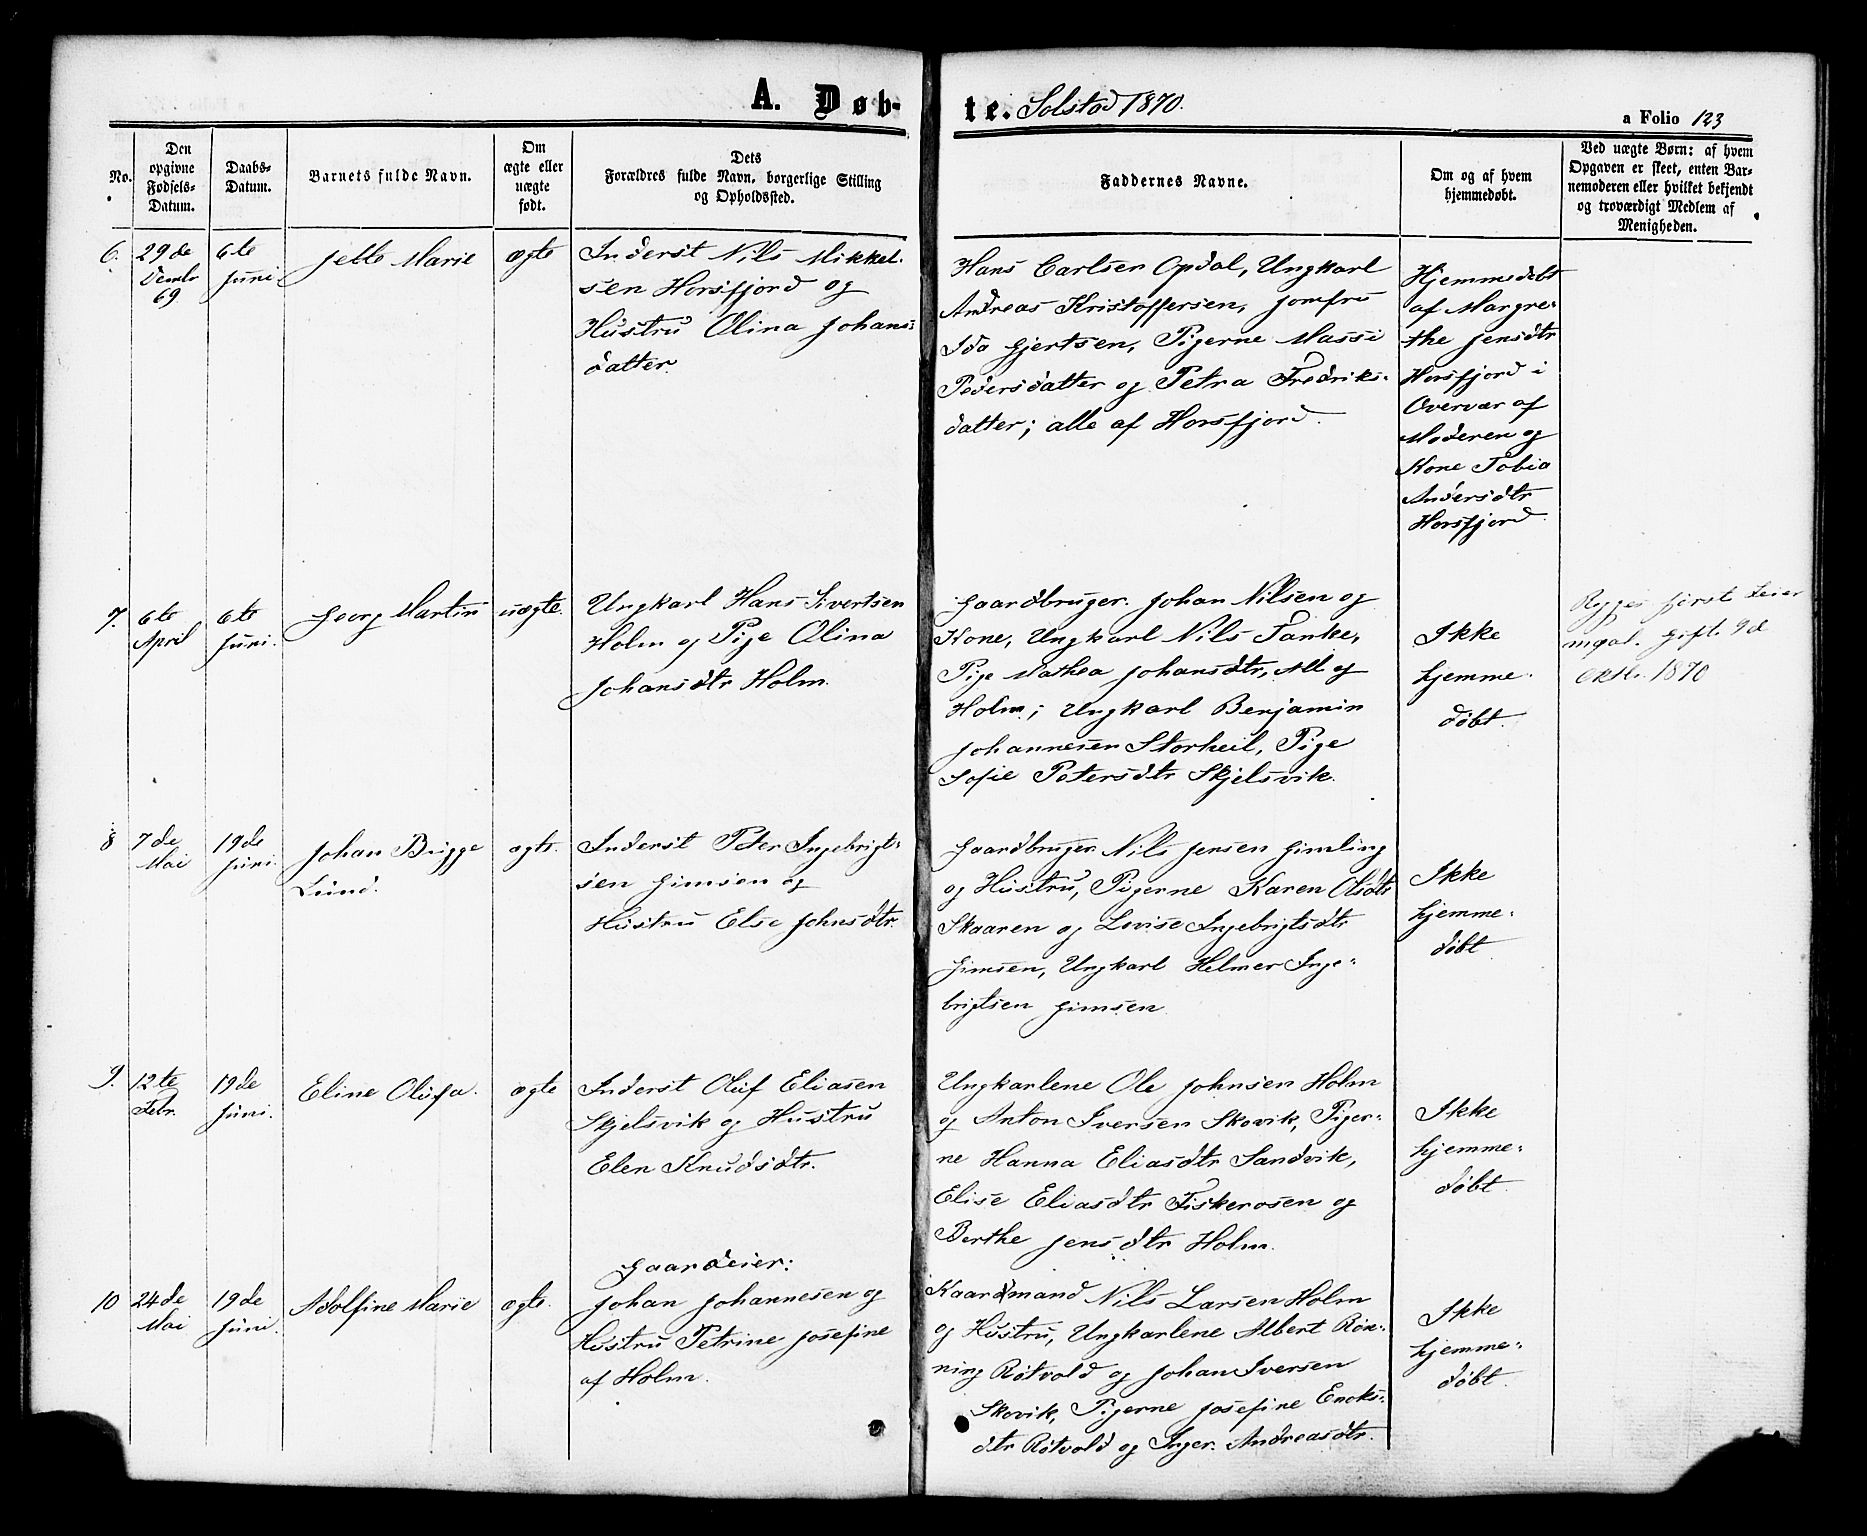 A. Døb-
te. Solstad 1870.
a Folio 123
No.
Den
opgivne
Fødsels-
Datum.
Daabs-
Datum.
Barnets fulde Navn.
Om
ægte eller
uægte
født.
Dets
Forældres fulde Navn, borgerlige Stilling
og Opholdssted.
Faddernes Navne.
Om og af hvem
hjemmedøbt.
Ved uægte Børn: af hvem
Opgaven er skeet, enten Bar-
nemoderen eller hvilket bekjendt
og troværdigt Medlem af
Menigheden.
6.
29de
Decmbr
69
6te
Juni
Jelle Marie
ægte
Inderst Nils Mikkel-
sen Horsfjord og
Hustru Olina Johans-
datter.
Hans Carlsen Opdal, Ungkarl
Andreas Kristoffersen, Jomfru
Ida Gjertsen, Pigerne Massi
Pedersdatter og Petra Fredriks-
datter; alle af Horsfjord.
Hjemmedøbt
af Margre-
the Jensdtr
Horsfjord i
Overvær af
Moderen og
Kone Tobia
Andersdtr
Horsfjord.
7.
6te
April
6te
Juni.
Georg Martin
uægte.
Ungkarl Hans Sivertsen
Holm og Pige Olina
Johansdtr Holm.
Gaardbruger Johan Nilsen og
Kone, Ungkarl Nils Tanke,
Pige Mathea Johansdtr, All og
Holm; Ungkarl Benjamin
Johannesen Storheil, Pige
Sofie Petersdtr Skjelsvik.
Ikke
hjemme-
døbt.
Begges første Leier
maal. Gift 9d
Oktbr. 1870
8
7de
Mai
19de
Juni.
Johan Brigge
Lund.
ægte.
Inderst Peter Ingebrigt-
sen Gimsen og
Hustru Else Johnsdtr.
Gaardbruger Nils Jensen Gimling
og Hustru, Pigerne Karen Olsdtr
Skaaren og Lovise Ingebrigtsdtr
Gimsen, Ungkarl Helmer Inge-
brigtsen Gimsen
Ikke
hjemme-
døbt
9.
12te
Febr.
19de
Juni.
Eline Olufa.
ægte
Inderst Oluf Eliasen
Skjelsvik og Hustru
Elen Knudsdtr.
Ungkarlene Ole Johnsen Holm
og Anton Iversen Skovik, Piger-
ne Hanna Eliasdtr Sandvik,
Elise Eliasdtr Fiskerosen og
Berthe Jensdtr Holm.
Ikke
hjemme-
døbt
10
24de
Mai
19de
Juni.
Adolfine Marie
ægte.
Gaardeier:
Johan Johannesen og
Hustru Petrine Josefine
af Holm.
Kaardmand Nils Larsen Holm
og Hustru, Ungkarlene Albert Røn-
ning Røtvold og Johan Iversen
Skovik, Pigerne Josefine Enoks-
dtr Røtvold og Inger Andreasdtr.
Ikke
hjemme-
døbt.